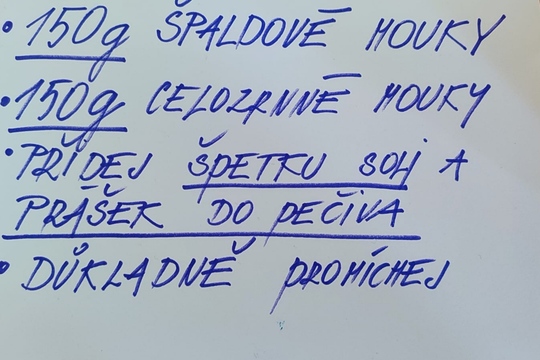 • 150g ŠPALDOVÉ MOUKY
• 150g CELOZRNNÉ MOUKY
• PŘIDEJ ŠPETKU SOLI A
PRÁŠEK DO PEČIVA
• DŮKLADNĚ PROMÍCHEJ